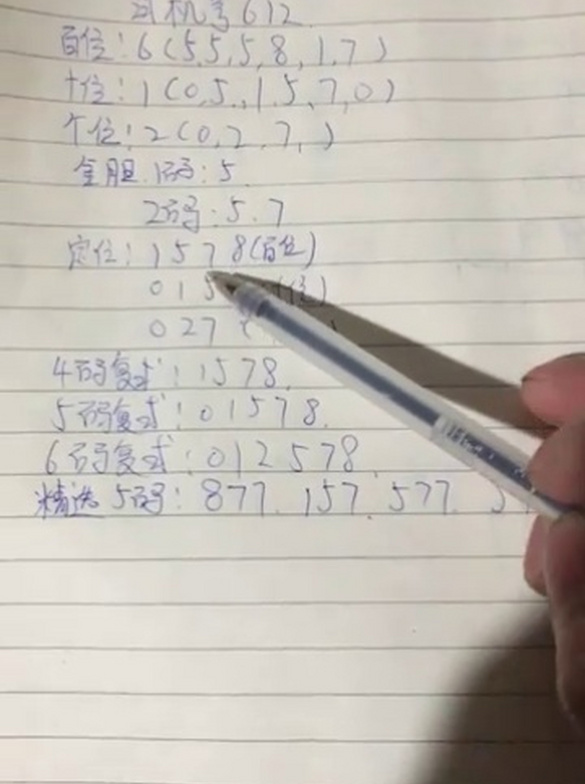 司机号612
百位:6(5,5,5,8,1,7)
十位:1(0,5,,1,5,7,0)
个位:2(0,2,7,)
金胆.1码:5
2码:5.7
定位:1578(百位)
015 位)
027
4码复式:1578.
5码复式:01578.
6码复式:012578
精选5码:877.157.577.